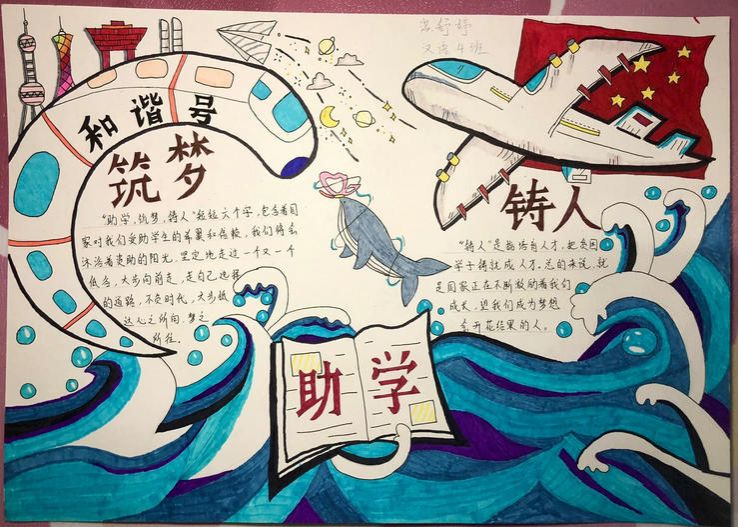 汉语4班
和谐号
筑梦
"助学,筑梦,铸人"轻轻六个字,包含着国
家对我们受助学生的希冀和信赖,我们将会
沐浴着资助的阳光,坚定地走过一个又一个
低谷,大步向前走,走自己选择
的道路,不负时代,大步撒
达心之所向,梦之
所往。
铸人
"铸人"是指培育人才,把贫困
学子铸就成人才。总的来说,就
是国家正在不断激励着我们
成长,望我们成为梦想
会开花结果的人。
助学